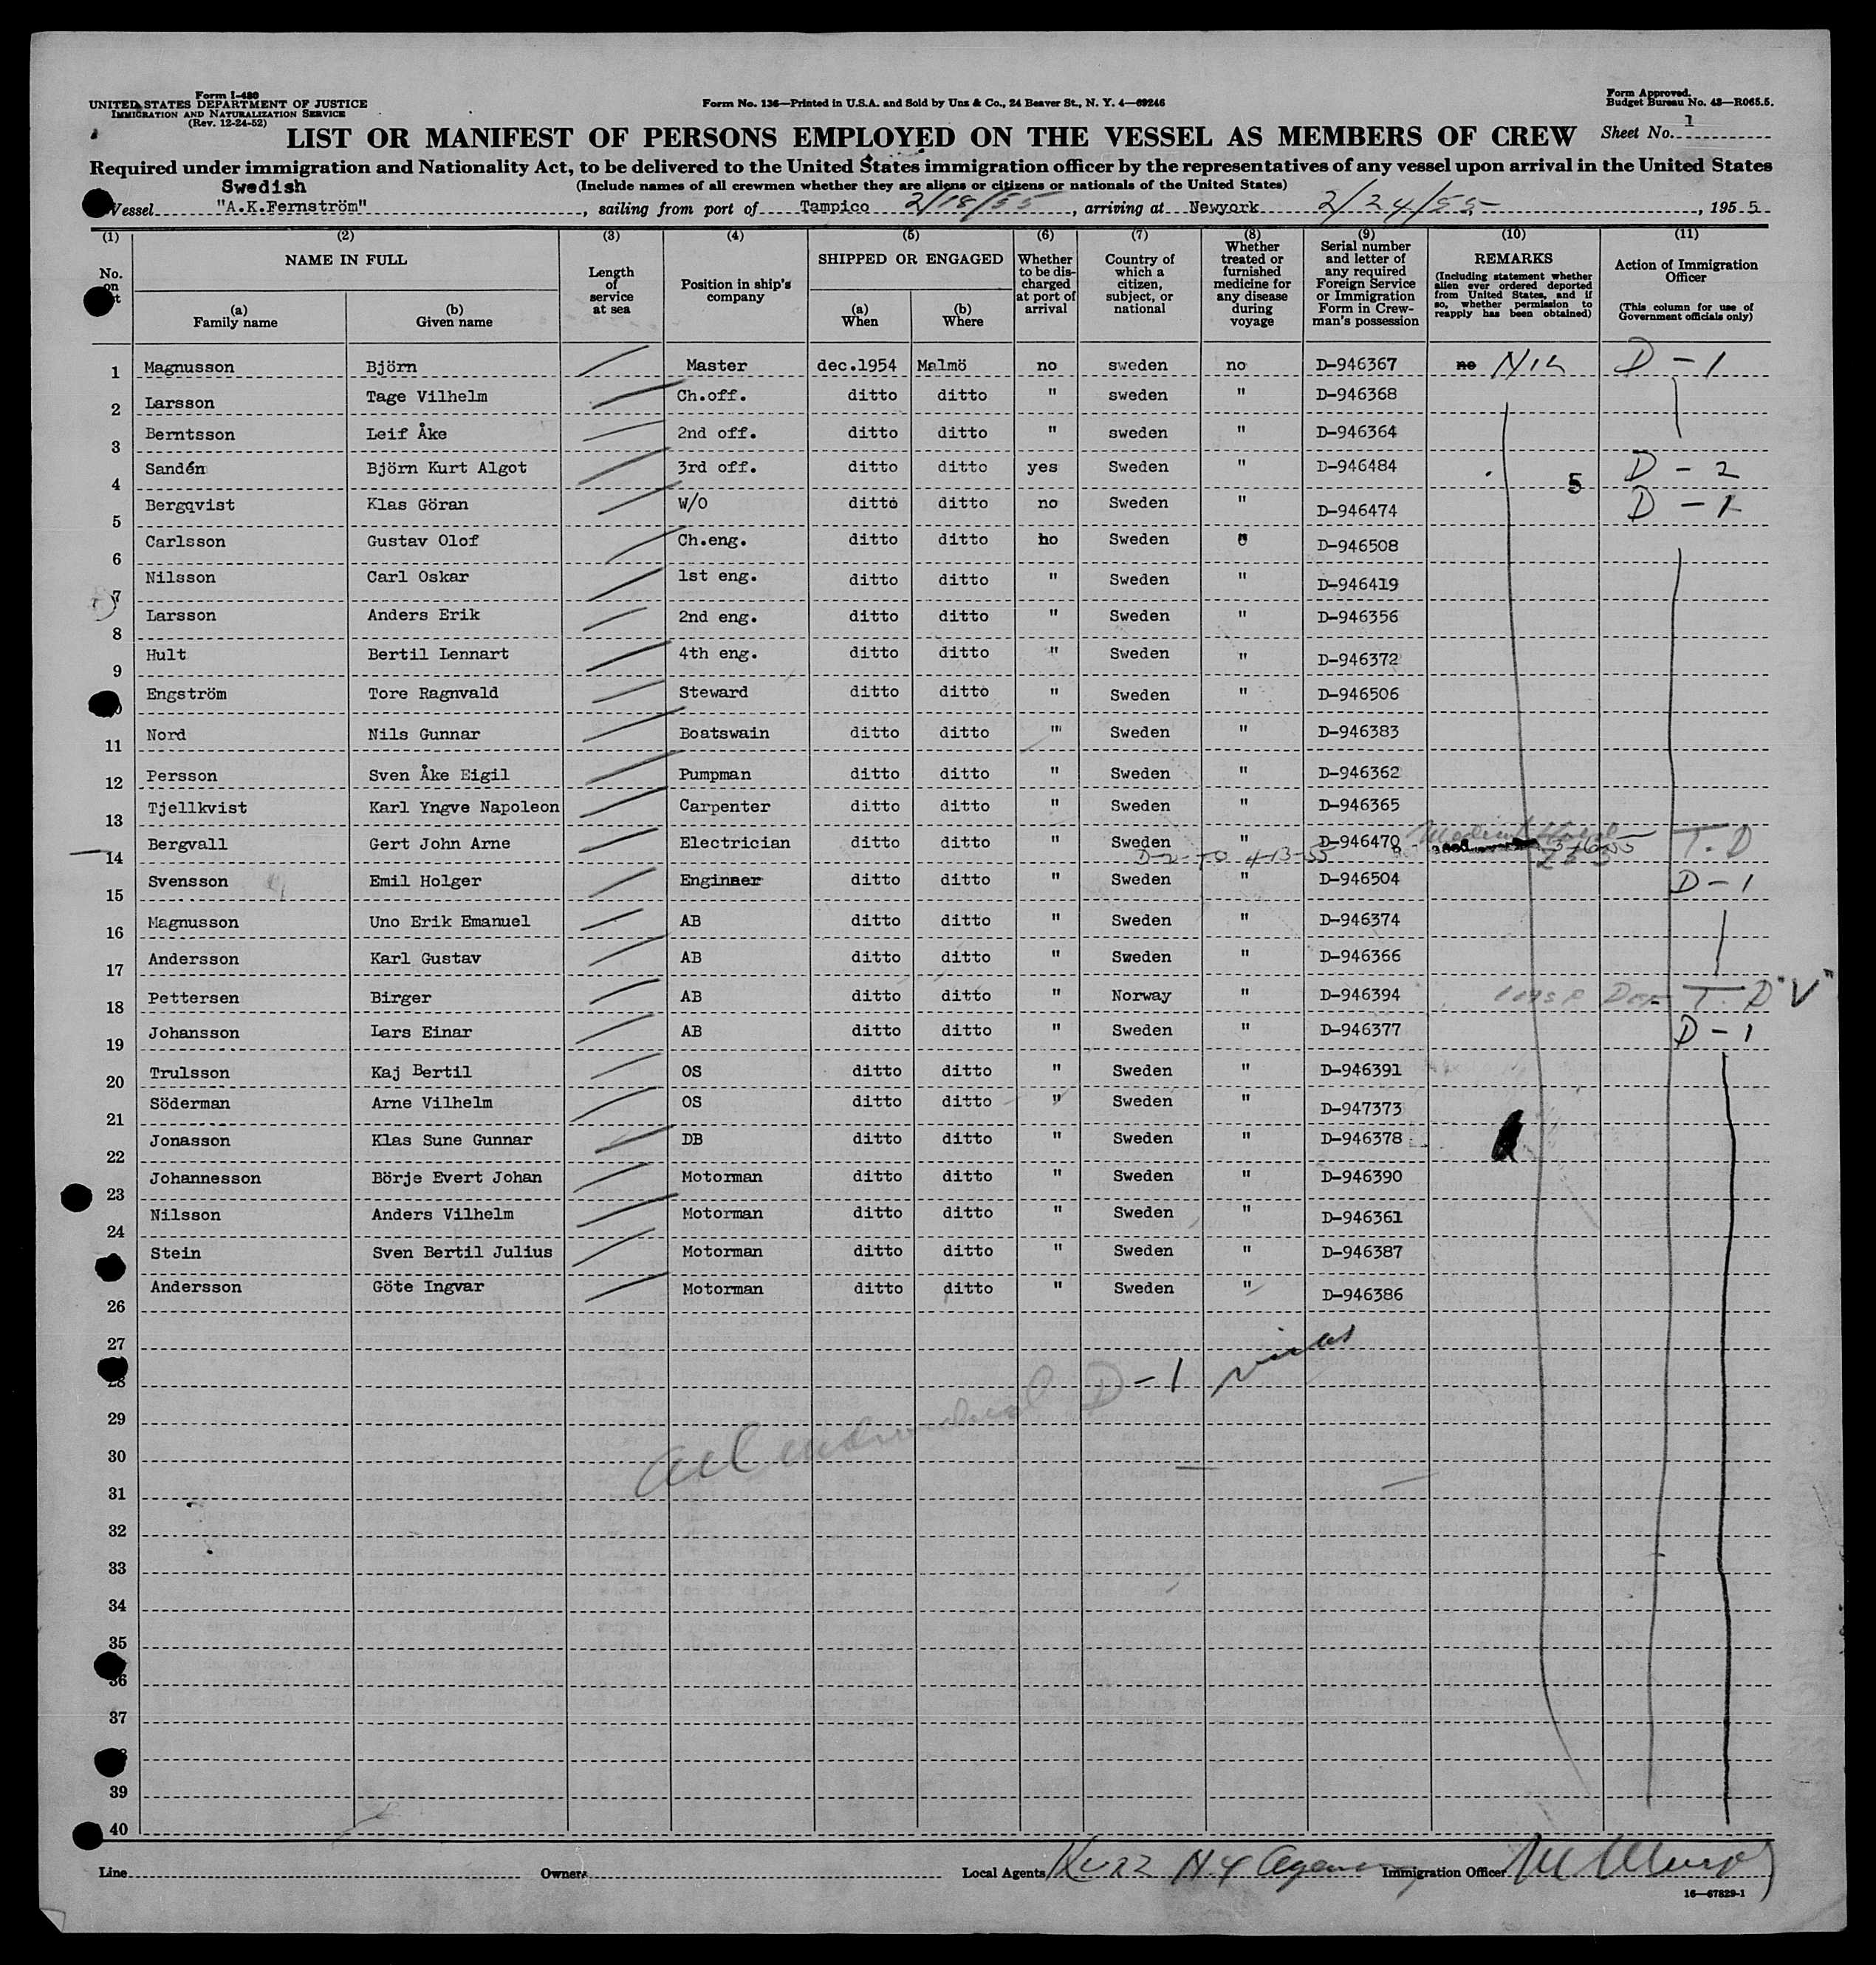 Form I-480
UNITED STATES DEPARTMENT OF JUSTICE
IMMIGRATION AND NATURALIZATION SERVICE
(Rev. 12-24-52)
Form No. 136—Printed in U.S.A. and Sold by Unz & Co., 24 Beaver St., N. Y. 4—69246
Form Approved.
Budget Bureau No. 43—R065.5.
LIST OR MANIFEST OF PERSONS EMPLOYED ON THE VESSEL AS MEMBERS OF CREW
Sheet No. 1
Required under immigration and Nationality Act, to be delivered to the United States immigration officer by the representatives of any vessel upon arrival in the United States
Swedish
(Include names of all crewmen whether they are aliens or citizens or nationals of the United States)
Vessel "A.K.Fernström", sailing from port of Tampico 2/18/55, arriving at Newyork 2/24/55, 1955
(1) (2) (3) (4) (5) (6) (7) (8) (9) (10) (11)
No. on NAME IN FULL
(a) Family name
(b) Given name
Length of service at sea
Position in ship's company
SHIPPED OR ENGAGED
(a) When
(b) Where
Whether to be discharged at port of arrival
Country of which a citizen, subject, or national
Whether treated or furnished medicine for any disease during voyage
Serial number and letter of any required Foreign Service or Immigration Form in Crewman's possession
REMARKS
(Including statement whether alien ever ordered deported from United States, and if so, whether permission to reapply has been obtained)
Action of Immigration Officer
(This column for use of Government officials only)
1 Magnusson Björn Master dec.1954 Malmö no sweden no D-946367 no Nil D-1
2 Larsson Tage Vilhelm Ch.off. ditto ditto " sweden " D-946368
3 Berntsson Leif Åke 2nd off. ditto ditto " sweden " D-946364
4 Sandén Björn Kurt Algot 3rd off. ditto ditto yes Sweden " D-946484 5 D-2
5 Bergqvist Klas Göran W/O ditto ditto no Sweden " D-946474 D-1
6 Carlsson Gustav Olof Ch.eng. ditto ditto no Sweden " D-946508
7 Nilsson Carl Oskar 1st eng. ditto ditto " Sweden " D-946419
8 Larsson Anders Erik 2nd eng. ditto ditto " Sweden " D-946356
9 Hult Bertil Lennart 4th eng. ditto ditto " Sweden " D-946372
Engström Tore Ragnvald Steward ditto ditto " Sweden " D-946506
11 Nord Nils Gunnar Boatswain ditto ditto " Sweden " D-946383
12 Persson Sven Åke Eigil Pumpman ditto ditto " Sweden " D-946362
13 Tjellkvist Karl Yngve Napoleon Carpenter ditto ditto " Sweden " D-946365
14 Bergvall Gert John Arne Electrician ditto ditto " Sweden " D-946470 T.D
D-2 TO 4-13-55
15 Svensson Emil Holger Enginner ditto ditto " Sweden " D-946504 D-1
16 Magnusson Uno Erik Emanuel AB ditto ditto " Sweden " D-946374
17 Andersson Karl Gustav AB ditto ditto " Sweden " D-946366
18 Pettersen Birger AB ditto ditto " Norway " D-946394 T.D "V"
19 Johansson Lars Einar AB ditto ditto " Sweden " D-946377 D-1
20 Trulsson Kaj Bertil OS ditto ditto " Sweden " D-946391
21 Söderman Arne Vilhelm OS ditto ditto " Sweden " D-947373
22 Jonasson Klas Sune Gunnar DB ditto ditto " Sweden " D-946378
23 Johannesson Börje Evert Johan Motorman ditto ditto " Sweden " D-946390
24 Nilsson Anders Vilhelm Motorman ditto ditto " Sweden " D-946361
Stein Sven Bertil Julius Motorman ditto ditto " Sweden " D-946387
26 Andersson Göte Ingvar Motorman ditto ditto " Sweden " D-946386
27
28
All individual D-1 visas
29
30
31
32
33
34
35
36
37
39
40
Line Owners Local Agents Kurz N.Y Agency Immigration Officer
16—67829-1